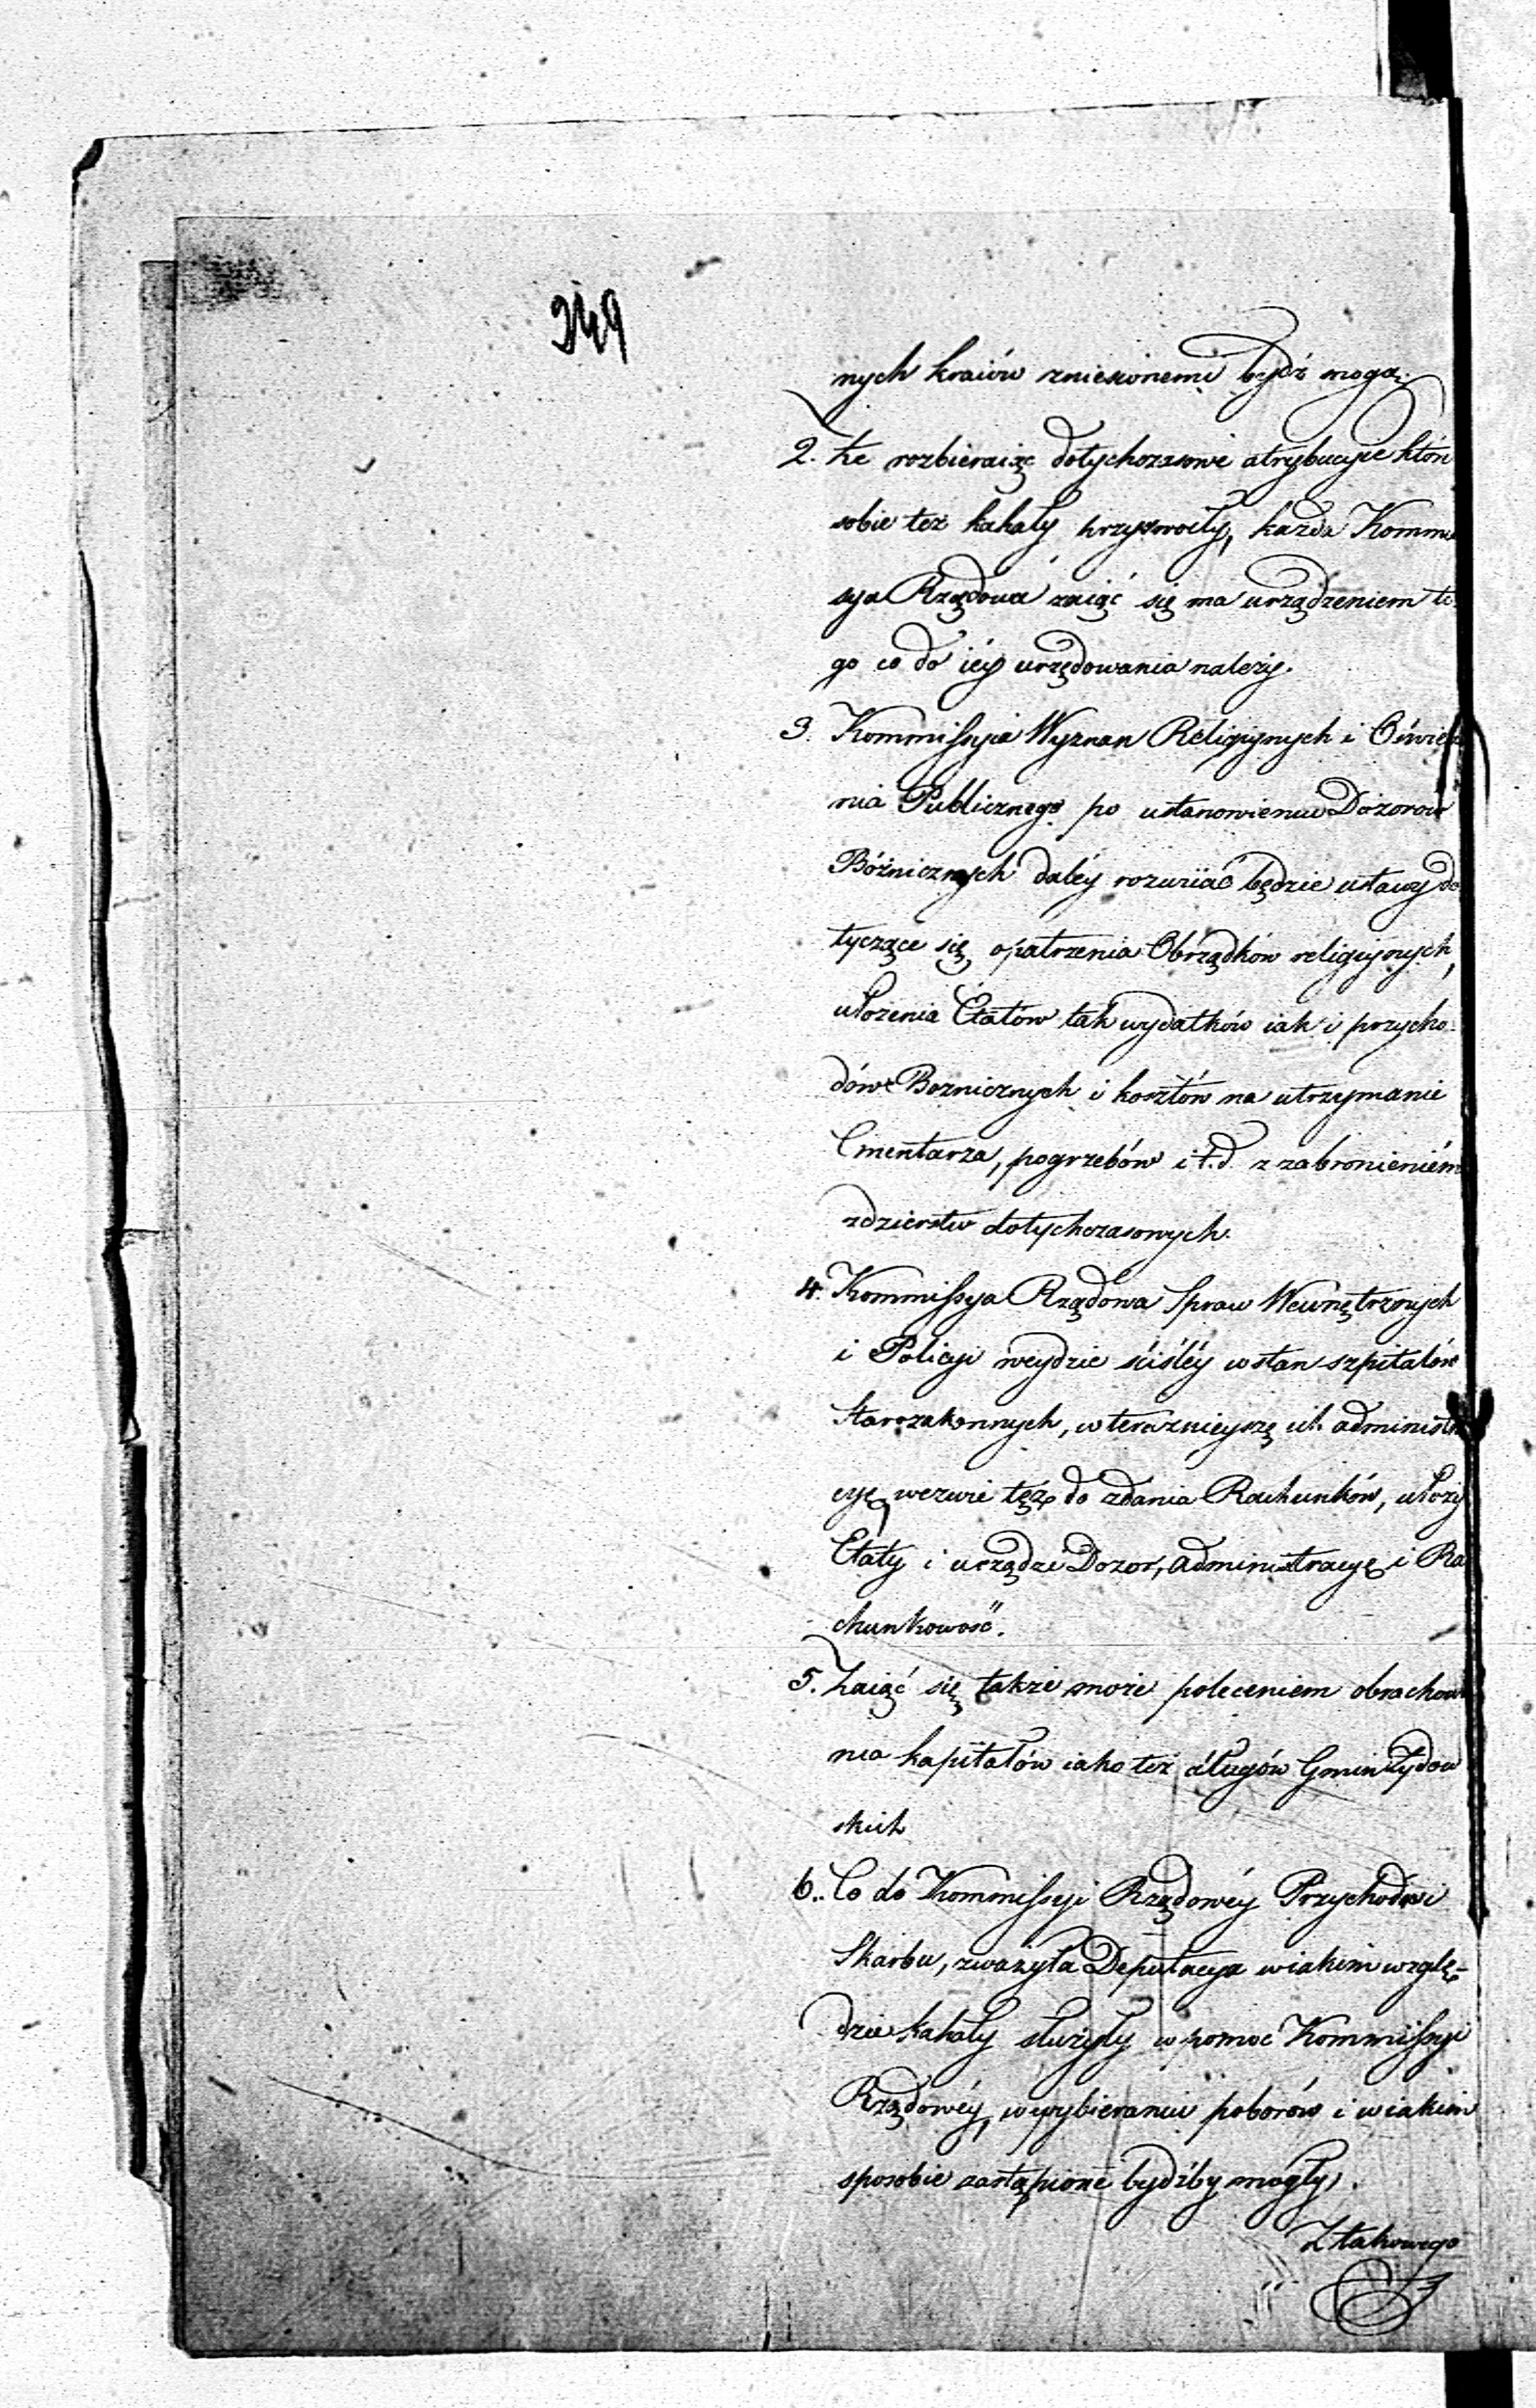 249
nych kraiów zniesionemi bydź mogą.
2. Że rozbieraiąc dotychczasowe atrybucye któr
sobie też kahały przyswoiły, każda Kommis
sya Rządowa zaiąć się ma urządzeniem te
go co do iéy urzędowania należy.
3. Kommissyia Wyznan Religiynych i Oświec
nia Publicznego po ustanowieniu Dozorow
Bóżnicznych daléy rozwiiać będzie ustawy do
tyczące się opatrzenia Obrządków religiynych,
ułożenia Etatów tak wydatków iak i przycho
dów Boznicznych i kosztów na utrzymanie
Cmentarza, pogrzebów i t.d. z zabronieniém
zdzierstw dotychczasowych.
4. Kommissya Rządowa Spraw Wewnętrznych
i Policyi weydzie ściśléy w stan szpitalów
Starozakonnych, w teraznieyszę ich administra
cyę, wezwie téż do zdania Rachunków, ułoży
Etaty i urządzi Dozor, Administracyę i Ra
chunkowość.
5. Zaiąć się także może poleceniem obrachowa
nia kapitałów iako też długów Gmin Żydow
skich
6. Co do Kommissyi Rządowéy Przychodów i
Skarbu, zważyła Deputacya w iakim wzglę-
dzie kahały służyły w pomoc Kommissyi
Rządowéy, w wybieraniu poborów i w iakim
sposobie zastąpione bydźby mogły.
Z takowego